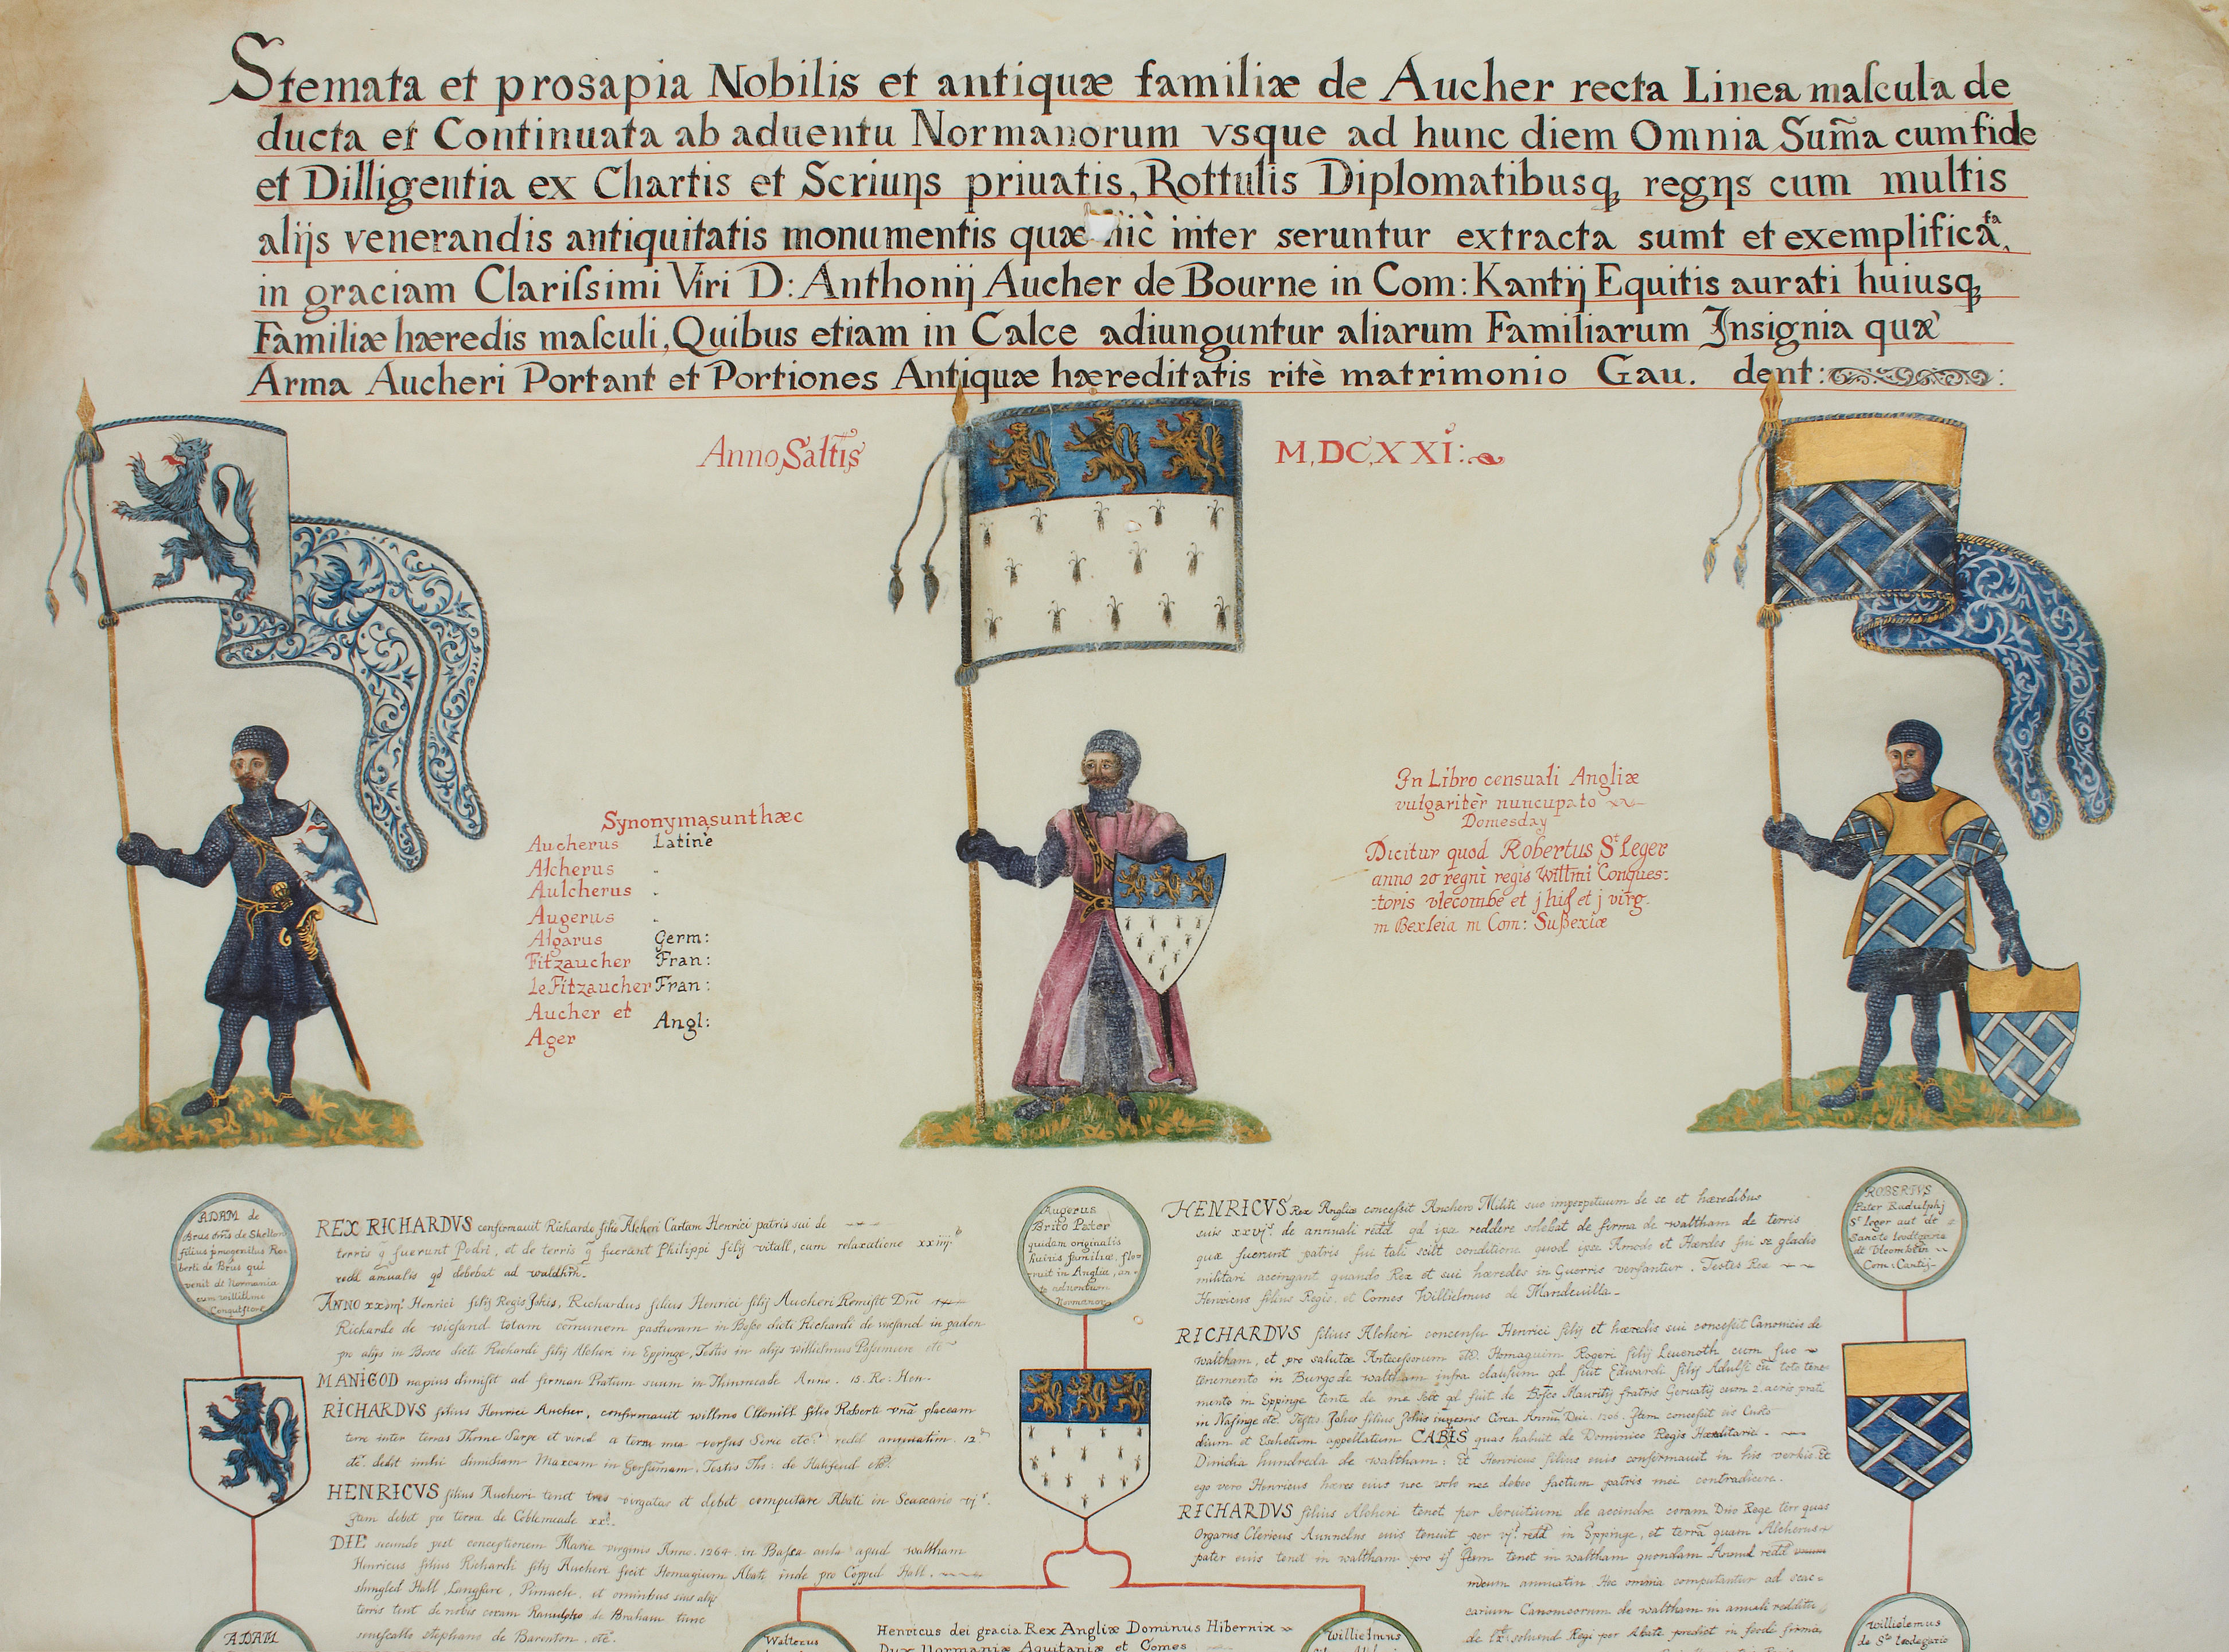 Stemata et prosapia Nobilis et antiquæ familiæ de Aucher recta Linea mascula de
ducta et Continuata ab aduentu Normanorum vsque ad hunc diem Omnia Sum̃a cum fide
et Dilligentia ex Chartis et Scriuijs priuatis, Rottulis Diplomatibusq regijs cum multis
alijs venerandis antiquitatis monumentis quæ hic inter seruntur extracta sumt et exemplificata,
in graciam Clarissimi Viri D: Anthonij Aucher de Bourne in Com: Kantij Equitis aurati huiusq
Familiæ hæredis masculi, Quibus etiam in Calce adiunguntur aliarum Familiarum Insignia quæ
Arma Aucheri Portant et Portiones Antiquæ hæreditatis ritè matrimonio Gau. dent:
Anno Saltis M,DC,XXI:
Synonyma sunt hæc
Aucherus Latinè
Alcherus
Aulcherus
Augerus
Algarus Germ:
Fitzaucher Fran:
le Fitzaucher Fran:
Aucher et
Ager Angl:
In Libro censuali Angliæ
vulgaritèr nuncupato
Domesday
Dicitur quod Robertus St Leger
anno 20 regni regis Willmi Conques:
:toris vlecombe et j hid et j virg.
in Bexleia in Com: Sussexiæ
ADAM de
Brus dñs de Skelton
filius primogenitus Ro
berti de Brus qui
venit de Normania
cum willilmo
Conquestore
REX RICHARDVS confirmauit Richardo filio Alcheri Cartam Henrici patris sui de
terris q fuerunt Pedri, et de terris q fuerant Philippi filij vitall, cum relaxatione xxiiij
redd annualis qd debebat ad waldhm.
ANNO Henrici filij Regis Johis, Richardus filius Henrici filij Aucheri Remisit Dño
Richardo de totam cõmunem pasturam in Bosco dicti Richardi de in
pro alijs in Bosco dicti Richardi filij Alcheri in Eppinge, Testis in alijs willielmus etc
MANIGOD napius dimisit ad firman Pratum suum in Thinmeade Anno. 15. Re: Hen.
RICHARDVS filius Henrici Aucher, confirmauit willmo filio Roberti vnã placeam
terre inter terras et a terra mea versus etc redd annuatim 12
etc. debit mihi dimidiam Marcam in Gersumam, Testis Th: de etc.
HENRICVS filius Aucheri tenet tres virgatas et debet computare Abati in Scaccario
Item debit pro terra de Coblemeade xx
DIE secundo post conceptionem Marie virginis Anno. 1264. in Bassa aula apud waltham
Henricus filius Richardi filij Aucheri fecit Homagium Abati inde pro Copped Hall.
shingled Hall, Langfare, Pirnache, et omnibus suis alijs
terris tent de nobis coram Ranulpho de Braham tunc
senescallo stephano de Barenton. etc.
Augerus
Brito Pater
quidam originalis
huius familiæ, flo
ruit in Anglia, an
te aduentum
Normanor
HENRICVS Rex Angliæ concessit Auchero Militi suo imperpetuum de se et hæredibus
suis xxvjs. de annuali redd qd ipse reddere solebat de ferma de waltham de terris
quæ fuerunt patris sui tali scilt conditione quod ipse Amodo et Hærdes sui se gladio
militari accingant quando Rex et sui hæredes in Guerris versantur. Testes Rex
Henricus filius Regis, et Comes Willielmus de Mandeuilla.
RICHARDVS filius Alcheri concensu Henrici filij et hæredis sui concessit Canonicis de
waltham, et pro salutæ Antecessorum etc. Homagium Rogeri filij Leuenoth cum suo
tenemento in Burgo de waltham infra clausum qd fuit Edwardi filij Adulfi cũ toto tene
mento in Eppinge tente de me scilt qd fuit de Bosco Mauritij fratris Geruatij cum 2. acris prati
in Nasinge etc. Testis Johes filius Johis Circa Annũ Dni. 1206. Item concessit eis Custo
dium et Eschetum appellatum CABIS quas habuit de Dominico Regis Hæreditarie.
Dimidia hundreda de waltham: Et Henricus filius euis confirmauit in his verbis Et
ego vero Henricus hæres euis nec volo nec debeo factum patris mei contradicere.
RICHARDVS filius Alcheri tenet per Seruitium de accindra coram Dño Rege terr quas
Orgarus Clericus Auunclus euis tenuit per redd in Eppinge, et terrã quam Alcherus
pater euis tenet in waltham pro Item tenet in waltham quondam redd
meum annuatim Hec omnia computantur ad scac=
carium Canonicorum de waltham in annuali redditu
de solvend Regi per Abate predict in feodo firma,
ROBERTVS
Pater Radulphj
St Leger aut de
Sancto Leodegario
de Vlcombe in
Com: Cantij
ADAM
Walterus
Henricus dei gracia Rex Angliæ Dominus Hiberniæ
Dux Normaniæ Aquitaniæ et Comes
Willielmus
Willielmus
de Sto Leodegario